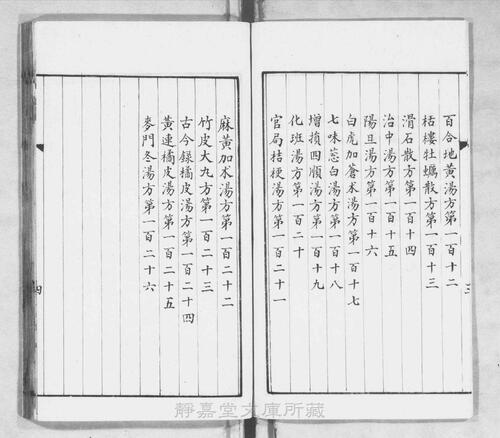 百合地黃湯方第一百十二
栝樓牡蠣散方第一百十三
滑石散方第一百十四
治中湯方第一百十五
陽旦湯方第一百十六
白虎加蒼朮湯方第一百十七
七味葱白湯方第一百十八
增損四順湯方第一百十九
化班湯方第一百二十
官局桔梗湯方第一百二十一
三
麻黃加朮湯方第一百二十二
竹皮大丸方第一百二十三
古今錄橘皮湯方第一百二十四
黃連橘皮湯方第一百二十五
麥門冬湯方第一百二十六
四
靜嘉堂文庫所藏